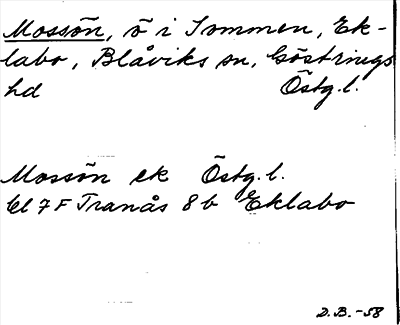 Mossön, ö i Sommen, Ek-
labo, Blåviks sn, Göstrings
hd Östg.l.
Mossön ek Östg.l.
Bl 7F Tranås 8b Eklabo
D.B.-58